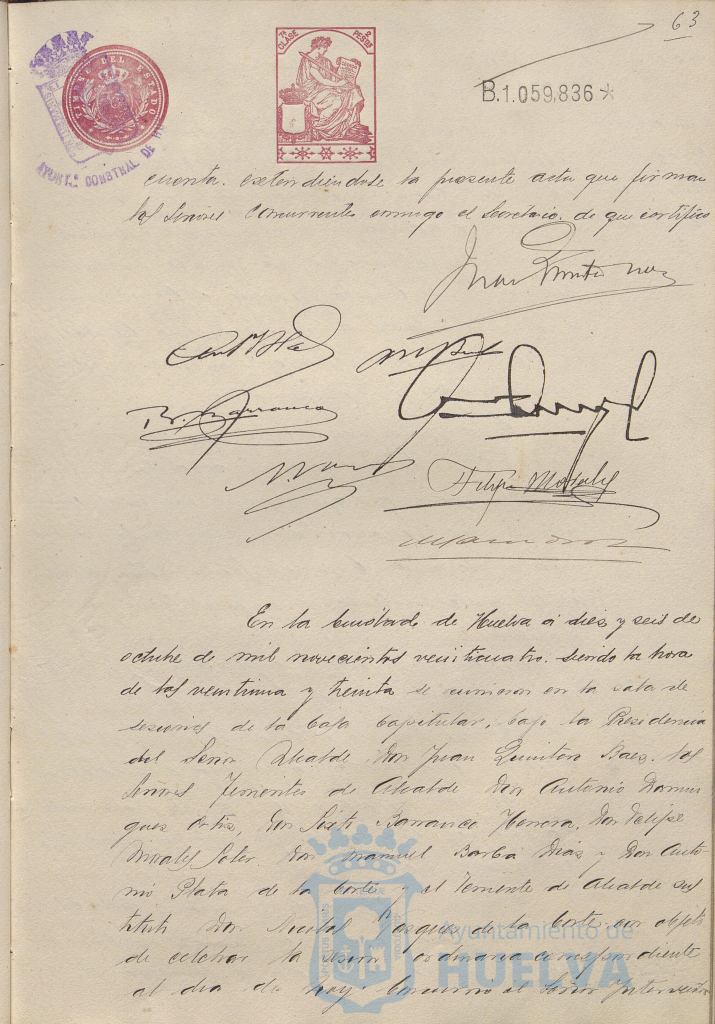 63
TIMBRE DEL ESTADO
7ª CLASE 2 PESETAS
B.1.059,836*
AYUNT.º CONSTNAL. DE
cuenta. extendiendose la presente acta que firman
los Señores Concurrentes conmigo el Secretario. de que certifico
Juan Quintero
B. Barranco
Felipe Morales
En la Ciudad de Huelva a diez y seis de
octubre de mil novecientos veinticuatro. siendo la hora
de las veintiuna y treinta se reunieron en la sala de
sesiones de la Casa Capitular, bajo la Presidencia
del Señor Alcalde Don Juan Quintero Baez. los
Señores Tenientes de Alcalde Don Antonio Domin
guez Ortiz, Don Sixto Barranco Herrera, Don Felipe
Morales Soler Don Manuel Barba Diaz y Don Anto
nio Plata de la Corte y el Teniente de Alcalde sus
tituto Don Vazquez de la Corte con objeto
de celebrar la sesion ordinaria correspondiente
al dia de hoy. Concurre el Señor Interventor
Ayuntamiento de
HUELVA